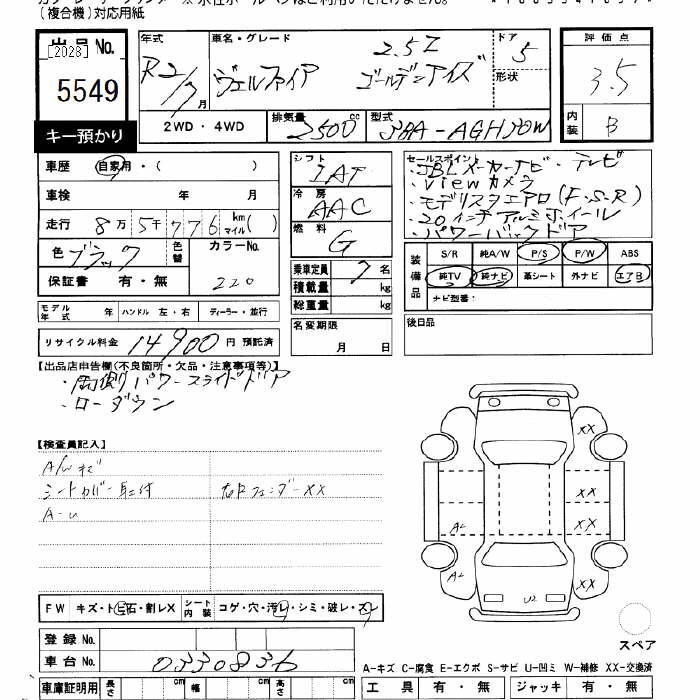 (複合機)対応用紙
出品No.
[2028]
5549
キー預かり
年式 R2/7月
車名・グレード 2.5Z
ヴェルファイア ゴールデンアイズ
ドア 5
形状
評価点
3.5
内装 B
2WD・4WD
排気量 2500 cc
型式 3BA-AGH30W
車歴 自家用・( )
車検 年 月
走行 8万5千776 km マイル( )
色 ブラック 色替
カラーNo. 220
保証書 有・無
モデル年式 年 ハンドル 左・右 ディーラー・並行
リサイクル料金 14900円 預託済
シフト IAT
冷房 AAC
燃料 G
乗車定員 7名
積載量 kg
総重量 kg
名変期限
月 日
セールスポイント
・JBLメーカーナビ・テレビ
・viewカメラ
・モデリスタエアロ(F.S.R)
・20インチアルミホイール
・パワーバックドア
装備品
S/R 純A/W P/S P/W ABS
純TV 純ナビ 革シート 外ナビ エアB
ナビ型番:
後日品
【出品店申告欄(不良箇所・欠品・注意事項等)】
・両側パワースライドドア
・ローダウン
【検査員記入】
A/Wキズ
シートカバー取付 右Fフェンダー XX
A-U
XX
XX
A2 XX
A2 XX
U2
FW キズ・ト ビ石・割レX シート内装 コゲ・穴・汚レ・シミ・破レ・スレ
スペア
登録No.
車台No. 0330836
A-キズ C-腐食 E-エクボ S-サビ U-凹ミ W-補修 XX-交換済
車庫証明用 長さ cm 幅 cm 高さ cm
工具 有・無 ジャッキ 有・無